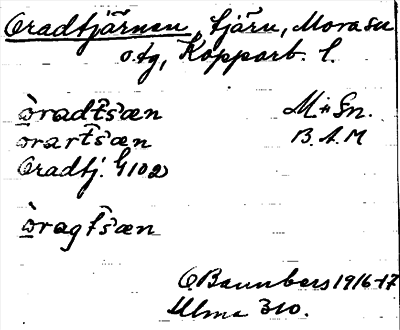 Oradtjärnen, tjärn, Mora sn
o. tg, Kopparb. l.
òradt͡sæn M. Sn.
orart͡sæn B. A. M
Oradtj. G 102
òragt͡sæn
O Bannbers 1916-17
Ulma 310.